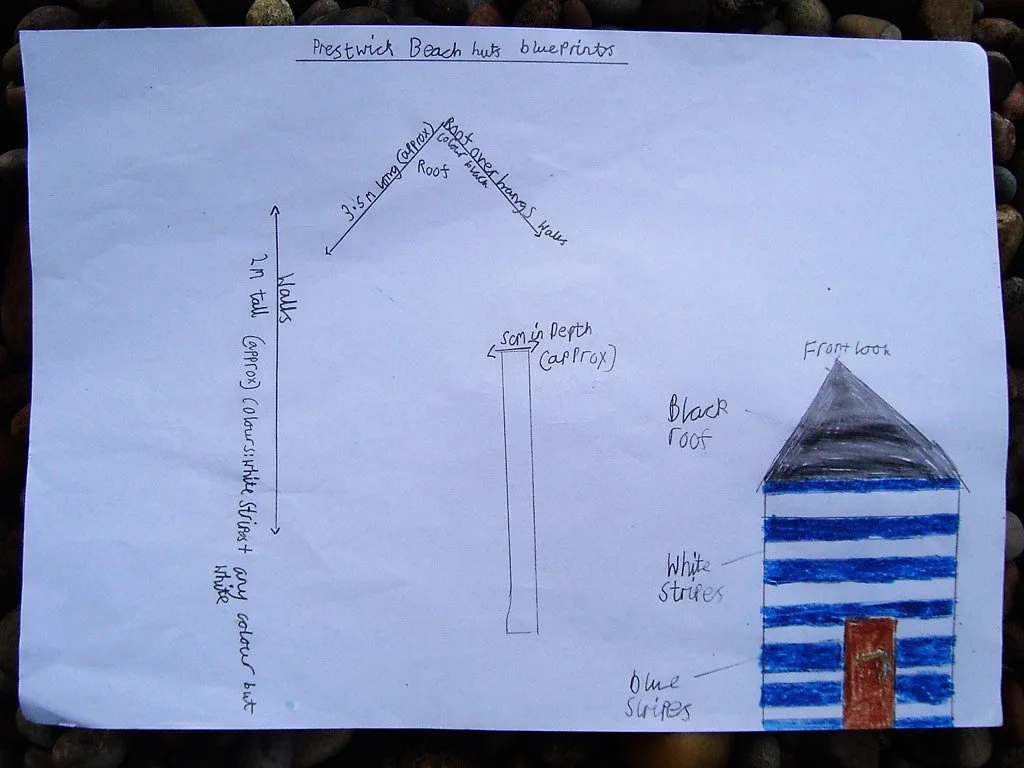 Prestwick Beach huts blueprints
3.5m long (approx)
Roof
Roof overhangs walls
colour black
Walls
2m tall (approx) colours: white stripes + any colour but
white
5cm in Depth
(approx)
Front look
Black
roof
White
stripes
blue
stripes